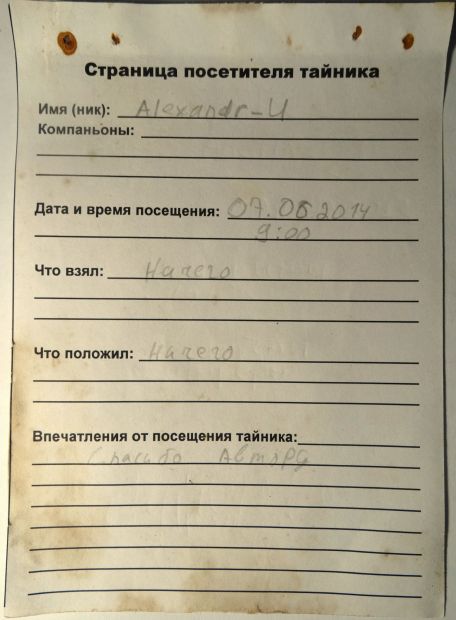 Страница посетителя тайника
Имя (ник): Alexandr-U
Компаньоны:
Дата и время посещения: 07.06 2014
9:00
Что взял: Ничего
Что положил: Ничего
Впечатления от посещения тайника:
Спасибо